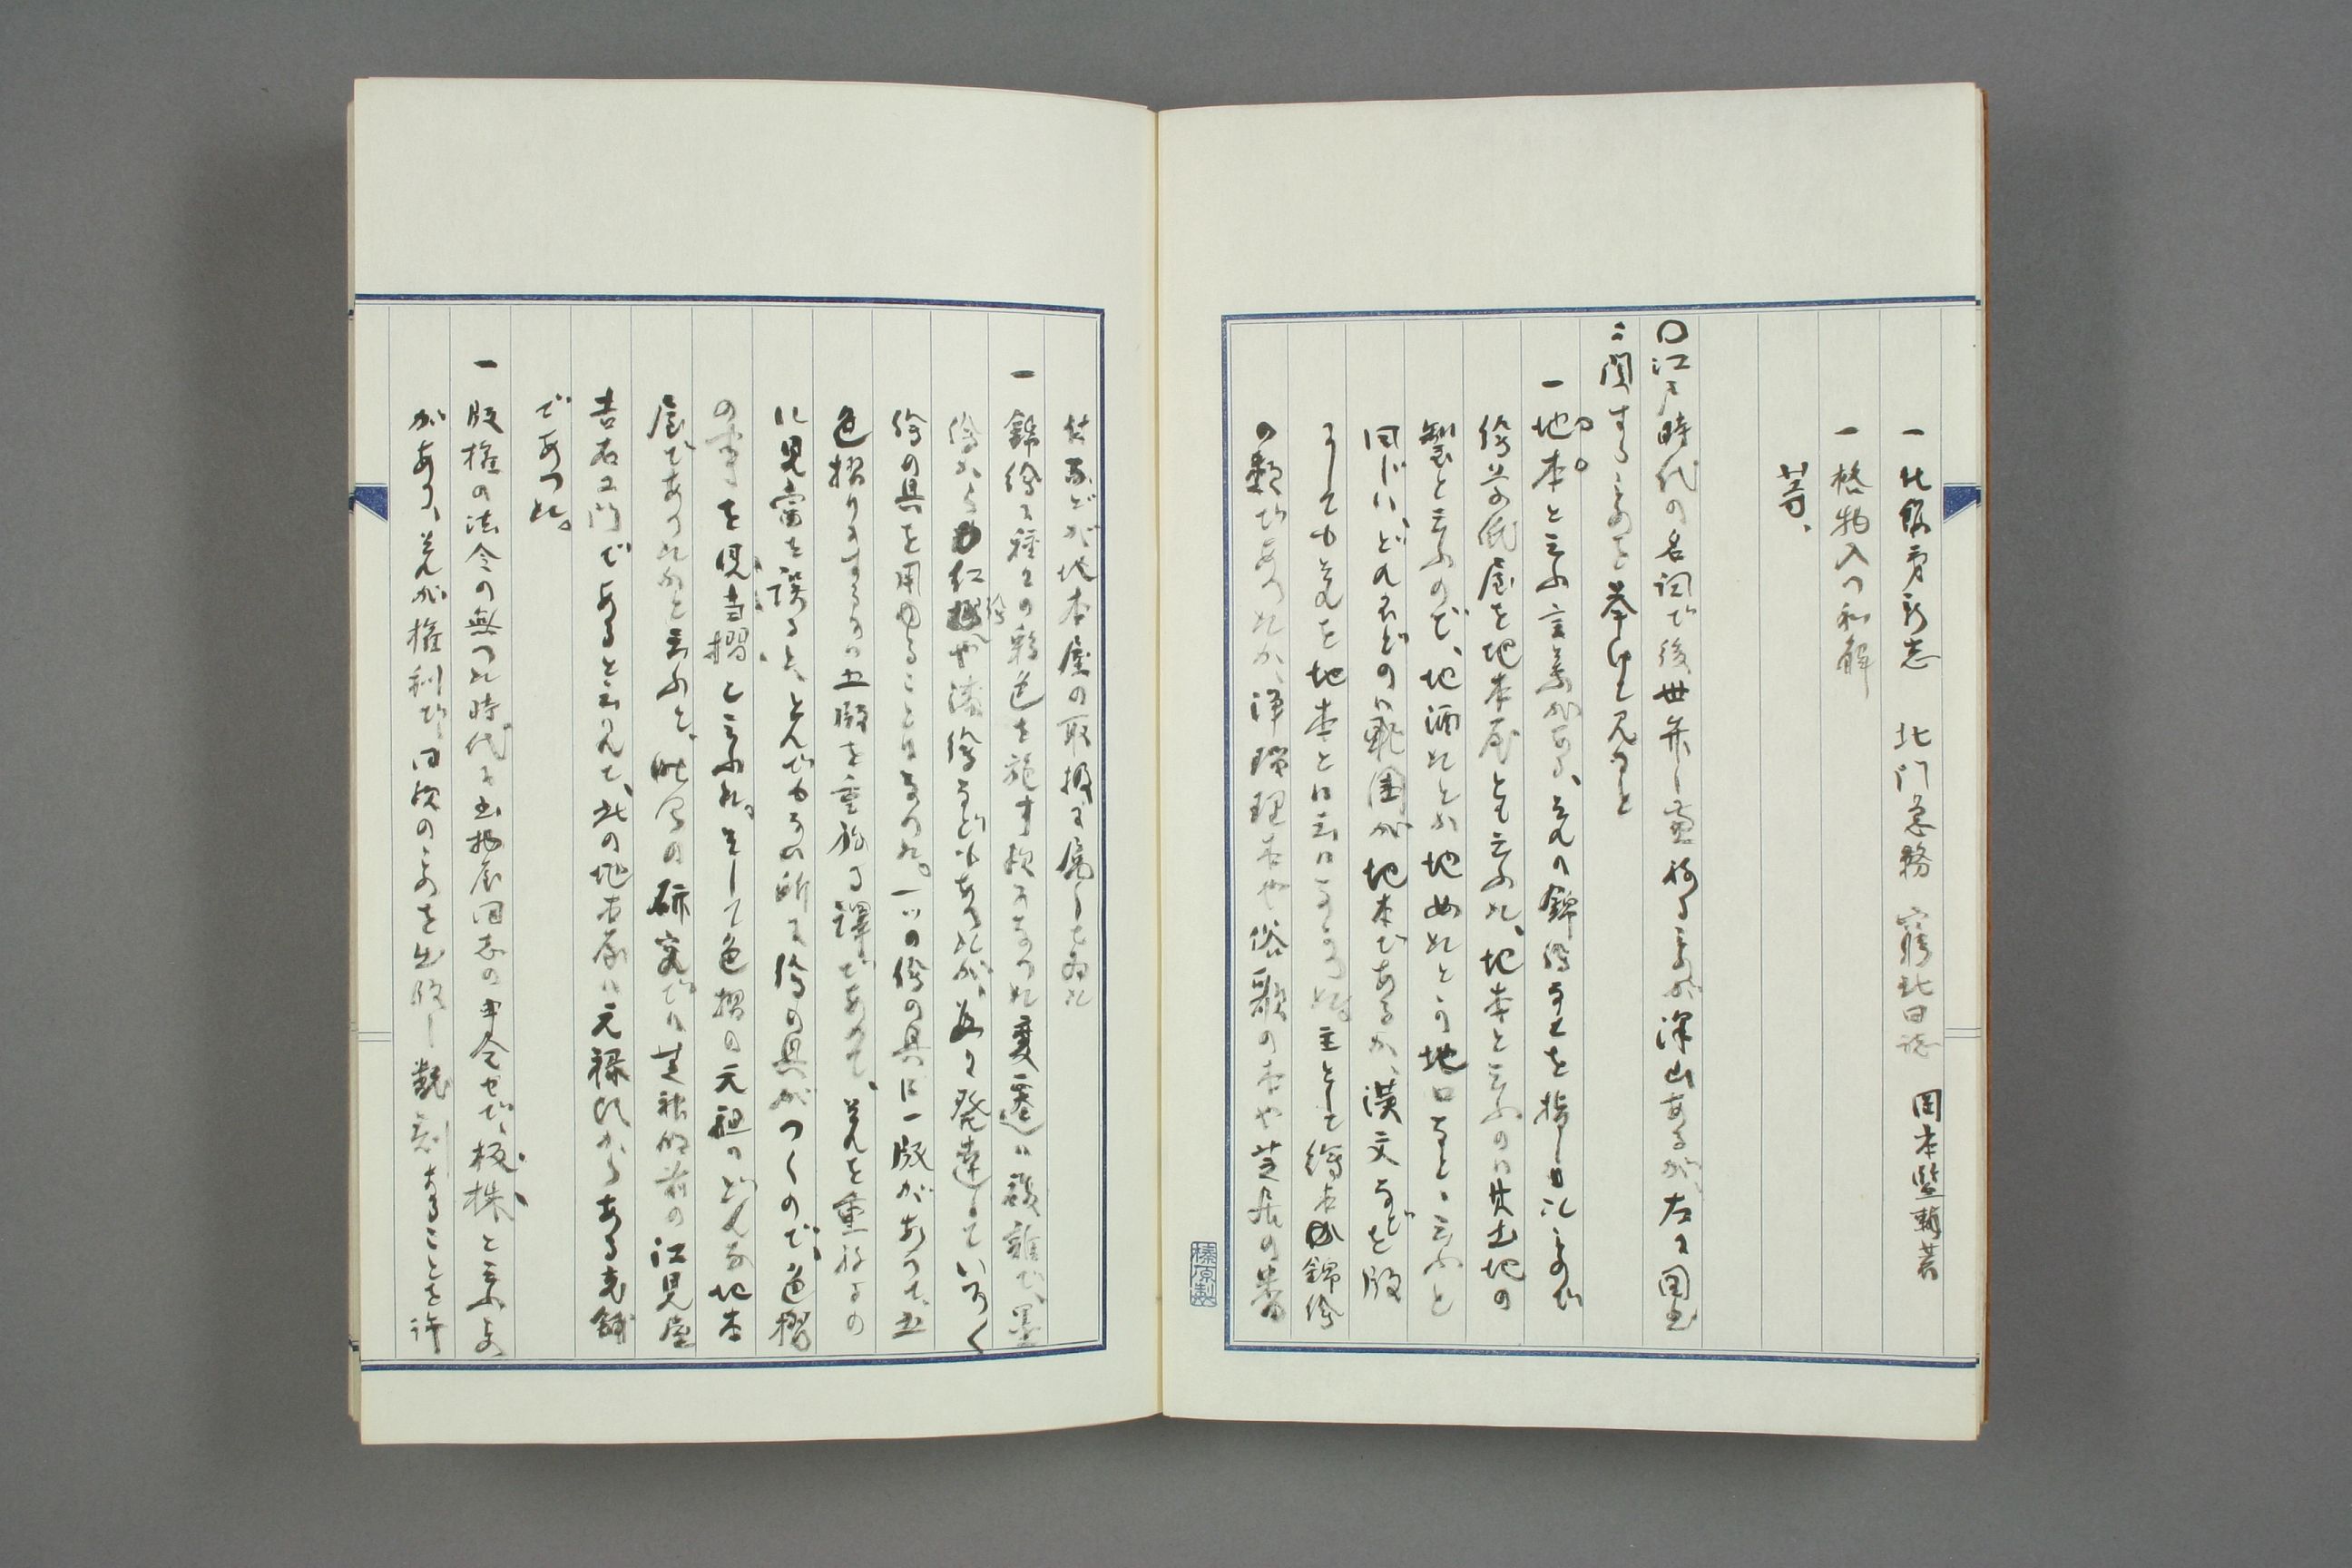 一 北般夷新志 北門急務 窮北日誌 岡本監輔著
一 格物入門和解
等、
〇江戸時代の名詞で後世弁じ兼ねることが沢山あるが、左に図書
に関することのみを挙げて見ると
一 地本と云ふ言葉がある、それは錦絵などを指したことので
絵草紙屋を地本屋とも云ふた、地本と云ふのは其土地の
製と云ふので、地酒だとか地女だとか地口などゝ云ふと
同じに、どれほどの範囲が地本であるか、漢文などを版
にしても之を地本とは云はなかつた。主として絵本か錦絵
の類であつたが、浄瑠理本や俗歌の本や芝居の番
付などが地本屋の取扱に属して居た
一 錦絵に種々の彩色を施す様になつた変遷は複雑で、墨
絵から紅絵や漆絵などもあるが、段々発達していろく
絵の具を用ゆることになつた。一ツの絵の具に一版があつて、五
色摺りにするには五版を重ねる訳であつて、それを重ねるの
に見当を誤ると、とんでもない所に絵の具がつくので、色摺
の事を見当摺と云ふた。そして色摺の元祖はどんな地本
屋であつたかと云ふと、此子の研究では芝神明前の江見屋
吉右エ門であると云はれて、此の地本屋は元禄頃からある老舗
であつた。
一 版権の法令の無つた時代に書物屋同志の申合せで、板株、と云ふもの
があり、それが権利で、同様のものを出版し飜刻することを許
榛原製